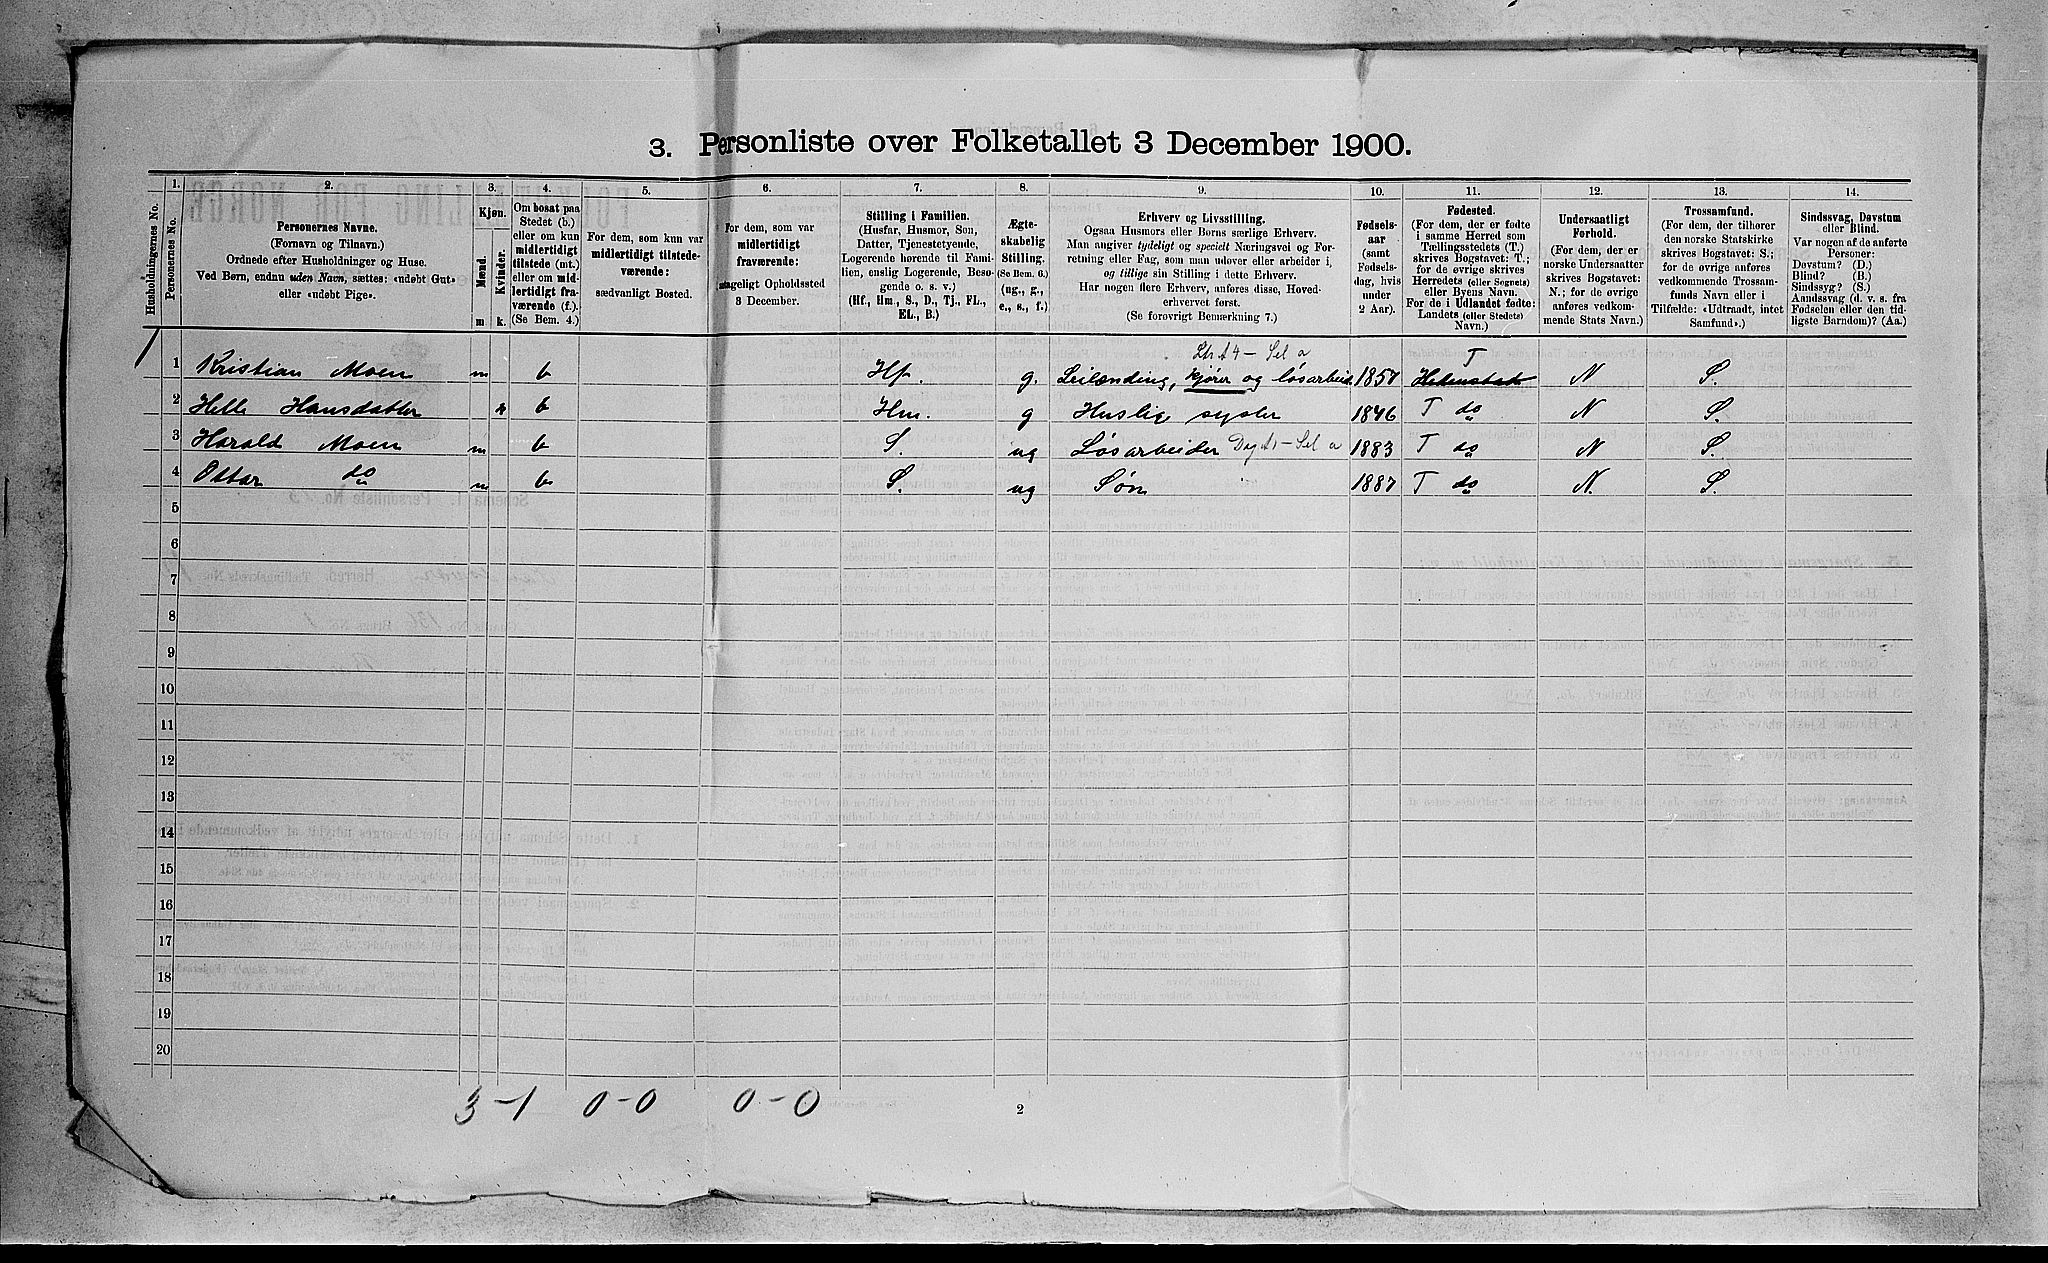 3. Personliste over Folketallet 3 December 1900.
Husholdningernes No.
1.
Personernes No.
2.
Personernes Navne.
(Fornavn og Tilnavn.)
Ordnede efter Husholdninger og Huse.
Ved Børn, endnu uden Navn, sættes: «udøbt Gut»
eller «udøbt Pige».
3.
Kjøn.
Mænd.
Kvinder.
m k.
4.
Om bosat paa
Stedet (b.)
eller om kun
midlertidigt
tilstede (mt.)
eller om mid-
lertidigt fra-
værende (f.).
(Se Bem. 4.)
5.
For dem, som kun var
midlertidigt tilstede-
værende:
sædvanligt Bosted.
6.
For dem, som var
midlertidigt
fraværende:
antageligt Opholdssted
3 December.
7.
Stilling i Familien.
(Husfar, Husmor, Søn,
Datter, Tjenestetyende,
Logerende hørende til Fami-
lien, enslig Logerende, Besø-
gende o. s. v.)
(Hf., Hm., S., D., Tj., FL.,
EL., B.)
8.
Ægte-
skabelig
Stilling.
(Se Bem. 6.)
(ug., g.,
e., s., f.)
9.
Erhverv og Livsstilling.
Ogsaa Husmors eller Børns særlige Erhverv.
Man angiver tydeligt og specielt Næringsvei og For-
retning eller Fag, som man udover eller arbeider i,
og tillige sin Stilling i dette Erhverv.
Har nogen flere Erhverv, anføres disse, Hoved-
erhvervet først.
(Se forøvrigt Bemærkning 7.)
10.
Fødsels-
aar
(samt
Fødsels-
dag, hvis
under
2 Aar).
11.
Fødested.
(For dem, der er fødte
i samme Herred som
Tællingsstedets (T.)
skrives Bogstavet: T.;
for de øvrige skrives
Herredets (eller Sognets)
eller Byens Navn.
For de i Udlandet fødte:
Landets (eller Stedets)
Navn.)
12.
Undersaatligt
Forhold.
(For dem, der er
norske Undersaatter
skrives Bogstavet:
N.; for de øvrige
anføres vedkom-
mende Stats Navn.)
13.
Trossamfund.
(For dem, der tilhører
den norske Statskirke
skrives Bogstavet: S.;
for de øvrige anføres
vedkommende Trossam-
funds Navn eller i
Tilfælde: «Udtraadt, intet
Samfund».)
14.
Sindssvag, Døvstum
eller Blind.
Var nogen af de anførte
Personer:
Døvstum? (D.)
Blind? (B.)
Sindssyg? (S.)
Aandssvag (d. v. s. fra
Fødselen eller den tid-
ligste Barndom)? (Aa.)
1 1 Kristian Moen m b Hf. g. Leilænding, kjører og løsarbeid. 1857 T N S.
2 Helle Hansdatter k b Hm. g Huslige sysler 1846 T do N S.
3 Harald Moen m b S. ug Løsarbeider 1883 T do N S.
4 Ottar do m b S. ug Søn 1887 T do N. S.
5
6
7
8
9
10
11
12
13
14
15
16
17
18
19
20
3-1 0-0 0-0
2